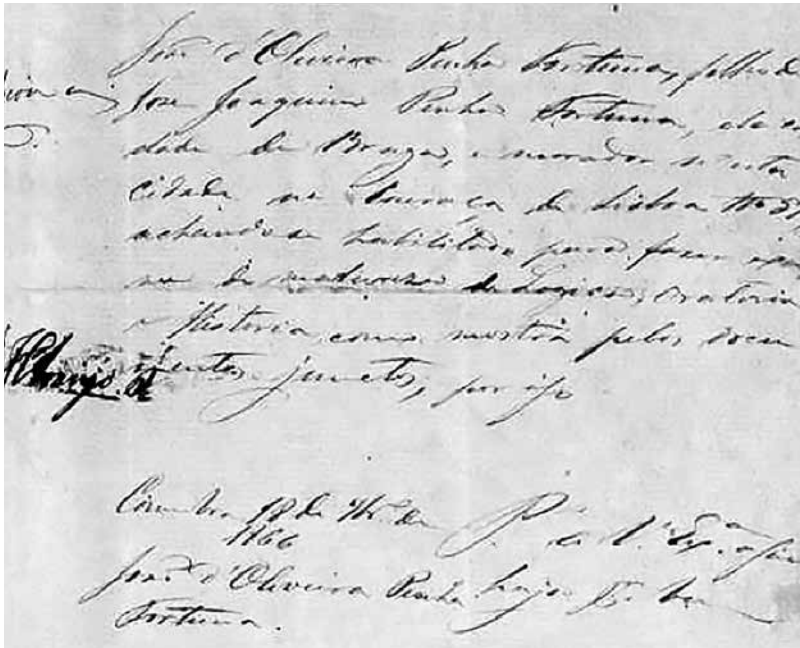 João d'Oliveira Penha Fortuna, filho de
José Joaquim Penha Fortuna, da ci
dade de Braga, e morador n'esta
cidade na Couraça de Lisboa
achando-se habilitado para fazer exa
me de madureza de Logica, Oratoria
e Historia, como mostra pelos docu
mentos junctos, por isso
Coimbra 18 de 8br.o de P. a V. Ex.a
1866
João d'Oliveira Penha haja por bem
Fortuna.